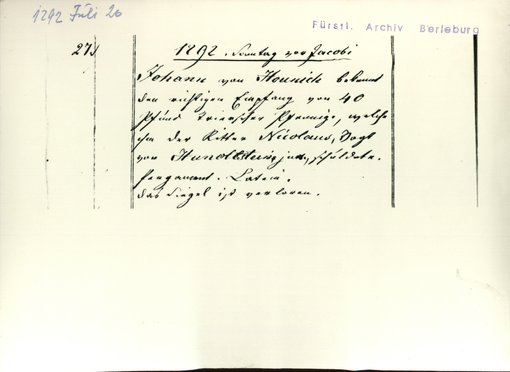 1292 Juli 20
Fürstl. Archiv Berleburg
273
1292. Sonntag vor Jacobi
Johann von bekennt
den richtigen Empfang von 40
Pfund Trierischer Pfennige, welche
ihm der Ritter Nicolaus, Vogt
von Hunoltstein schuldete.
Pergament. Latein.
das Siegel ist verloren.